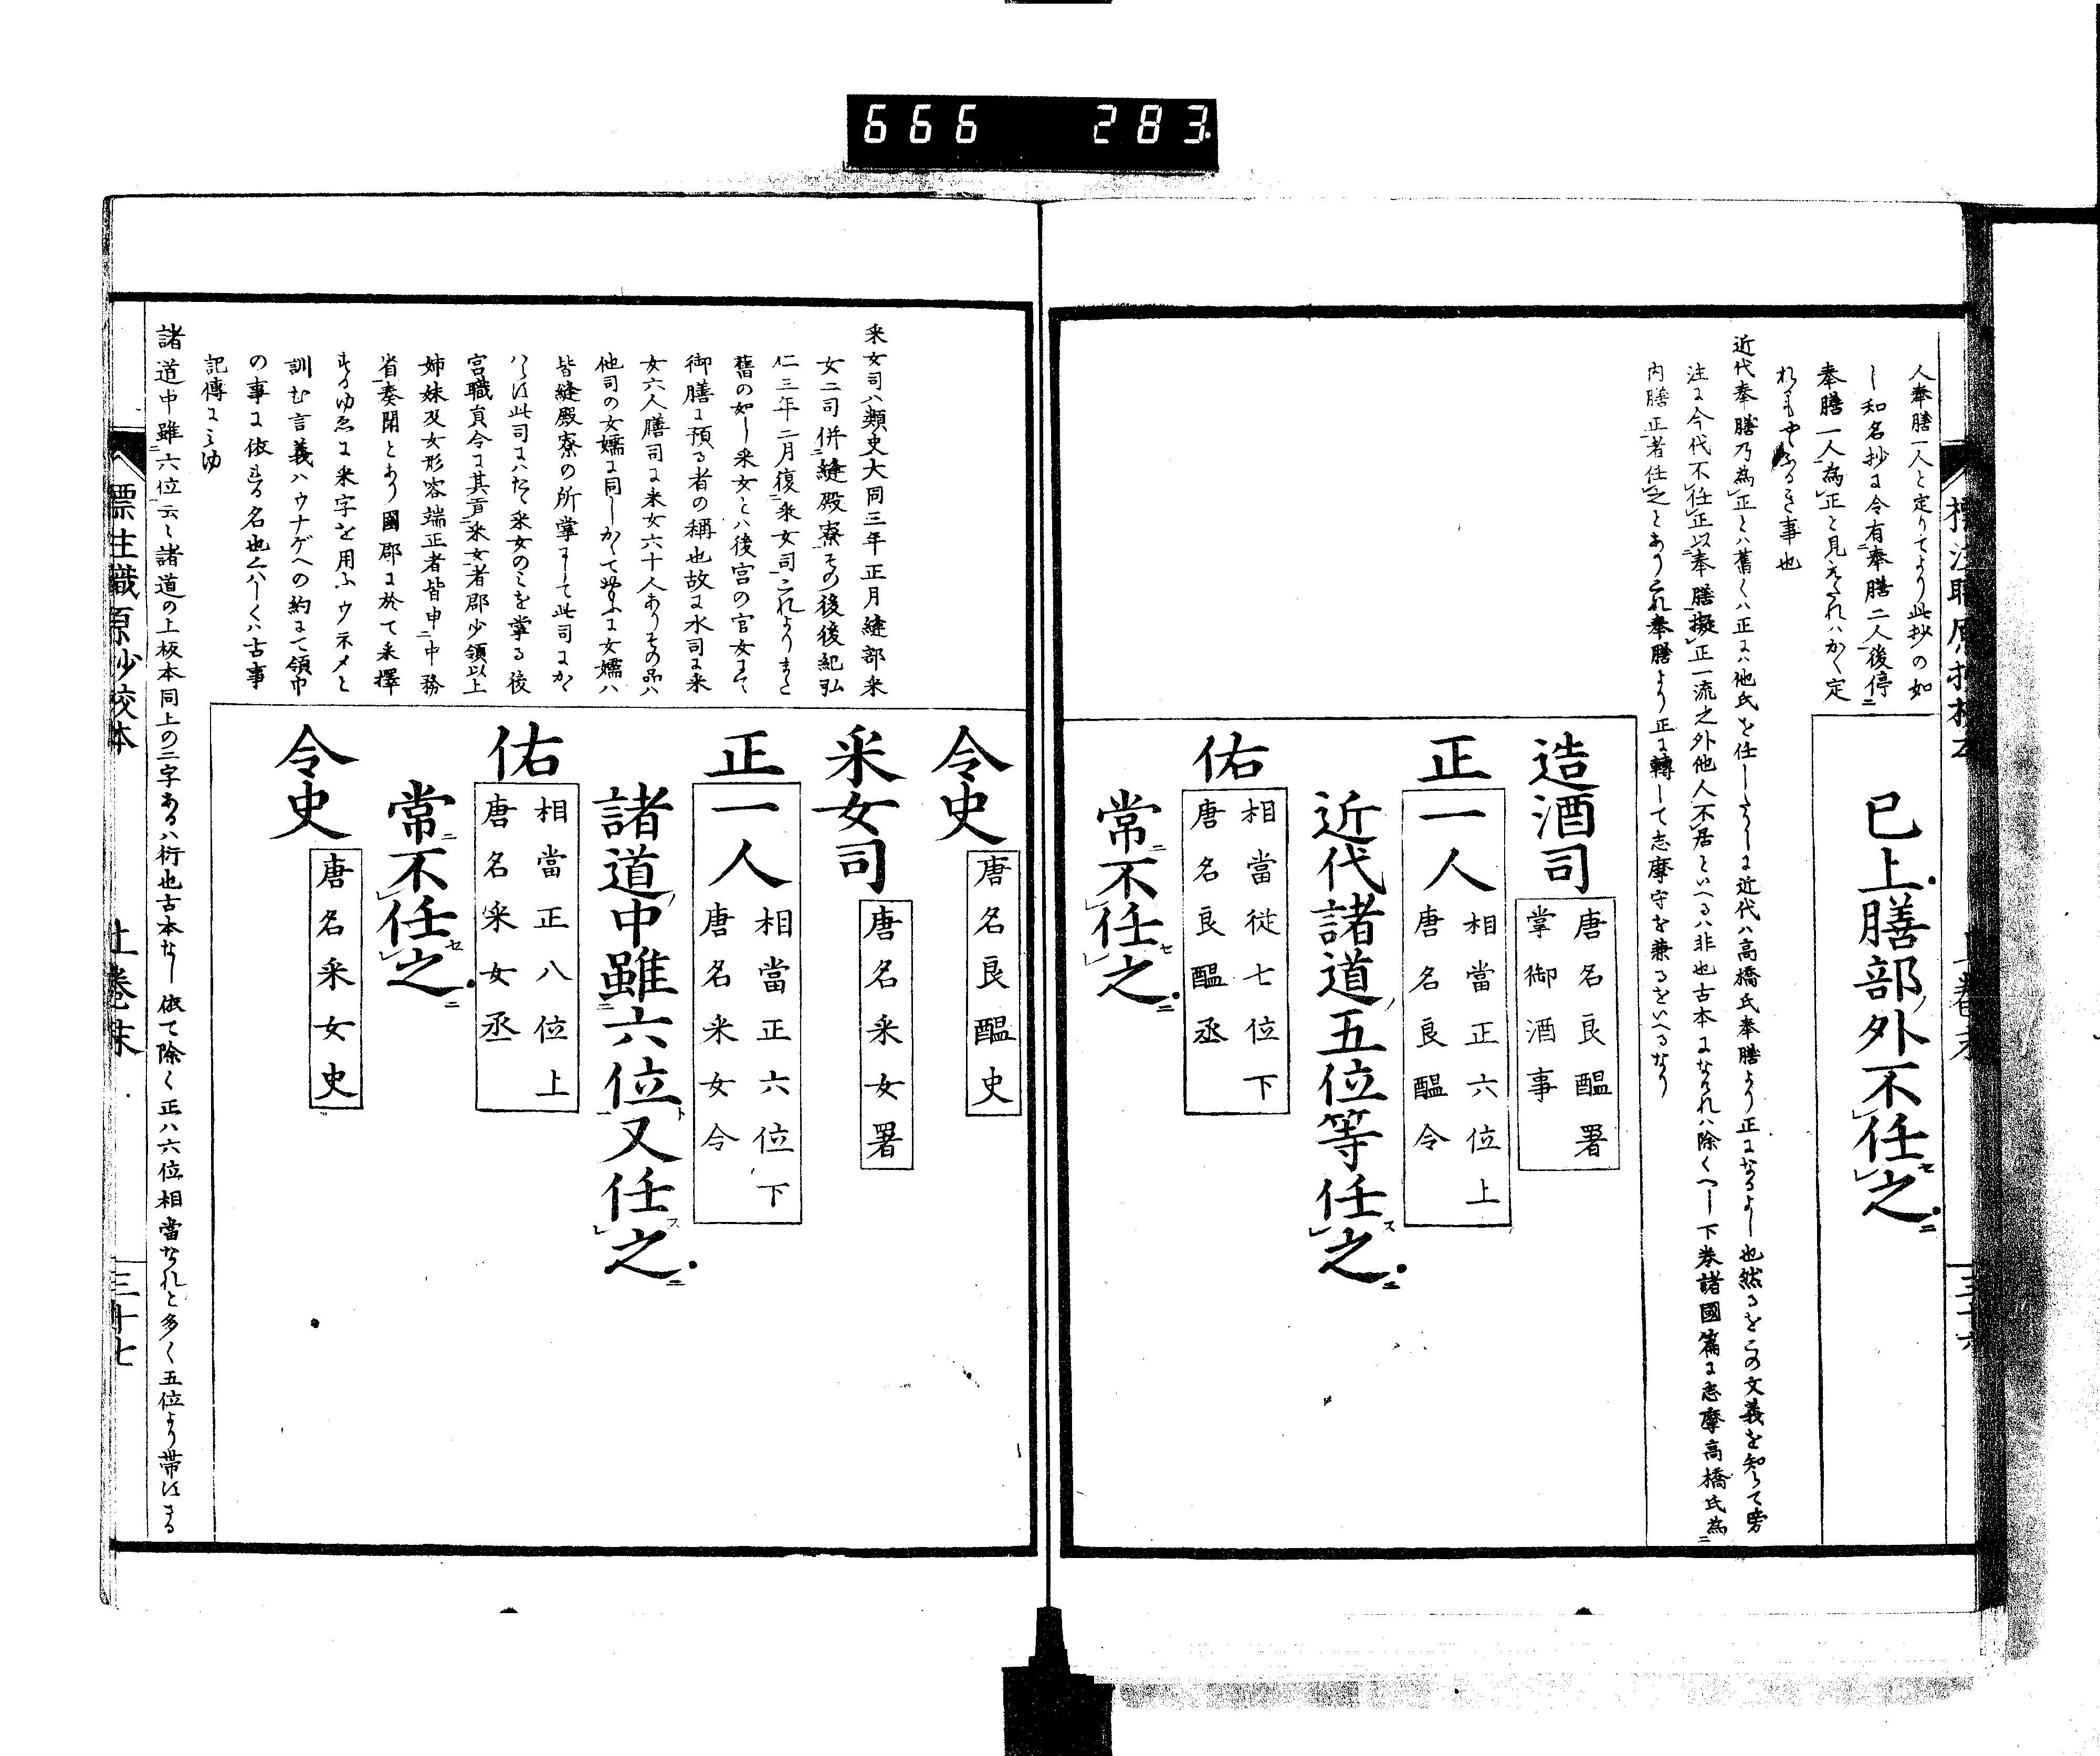 666 283
標注職原抄校本 上巻末 三十六
人奉膳一人と定りてより此抄の如
し和名抄に令有奉膳二人後停
奉膳一人為正と見えたれハかく定
事也
近代奉膳乃為正とハ舊くハ正にハ他氏を任しさしに近代ハ高橋氏奉膳より正になるよし也然るをこの文義を知らて旁
注に今代不任正以奉膳擬正一流之外他人不居といへるハ非也古本になけれハ除くへし下巻諸國篇に志摩高橋氏為
内膳正者任之とありこれ奉膳より正に轉して志摩守を兼るをいへるなり
已上膳部ノ外不任セ之ニ
造酒司
唐名良醞署
掌御酒事
正一人
相當正六位上
唐名良醞令
近代諸道ノ五位等任ス之ニ
佑
相當従七位下
唐名良醞丞
常ニ不任セ之ニ
令史
唐名良醞史
采女司ハ類史大同三年正月縫部采
女二司併縫殿寮その後後紀弘
仁三年二月復采女司これよりまた
舊の如し采女とハ後宮の官女にて
御膳に預る者の稱也故に水司に采
女六人膳司に采女六十人ありその品ハ
他司の女孺に同しかくて女孺ハ
皆縫殿寮の所掌にして此司にか
ハらは此司にハたゝ采女のミを掌る後
宮職員令に其貢采女者郡少領以上
姉妹及女形容端正者皆申中務
省奏聞とあり國郡に於て采擇
するゆゑに采字を用ふウネメと
訓む言義ハウナゲヘの約にて領巾
の事に依れる名也くハしくハ古事
記傳にミゆ
采女司
唐名采女署
正一人
相當正六位下
唐名采女令
諸道ノ中雖六位ト又任ス之ニ
佑
相當正八位上
唐名采女丞
常ニ不任セ之ニ
令史
唐名采女史
諸道中雖六位云々諸道の上板本同上の二字あるハ衍也古本なし依て除く正ハ六位相當なれと多く五位より帯はする
標注職原抄校本 上巻末 三十七